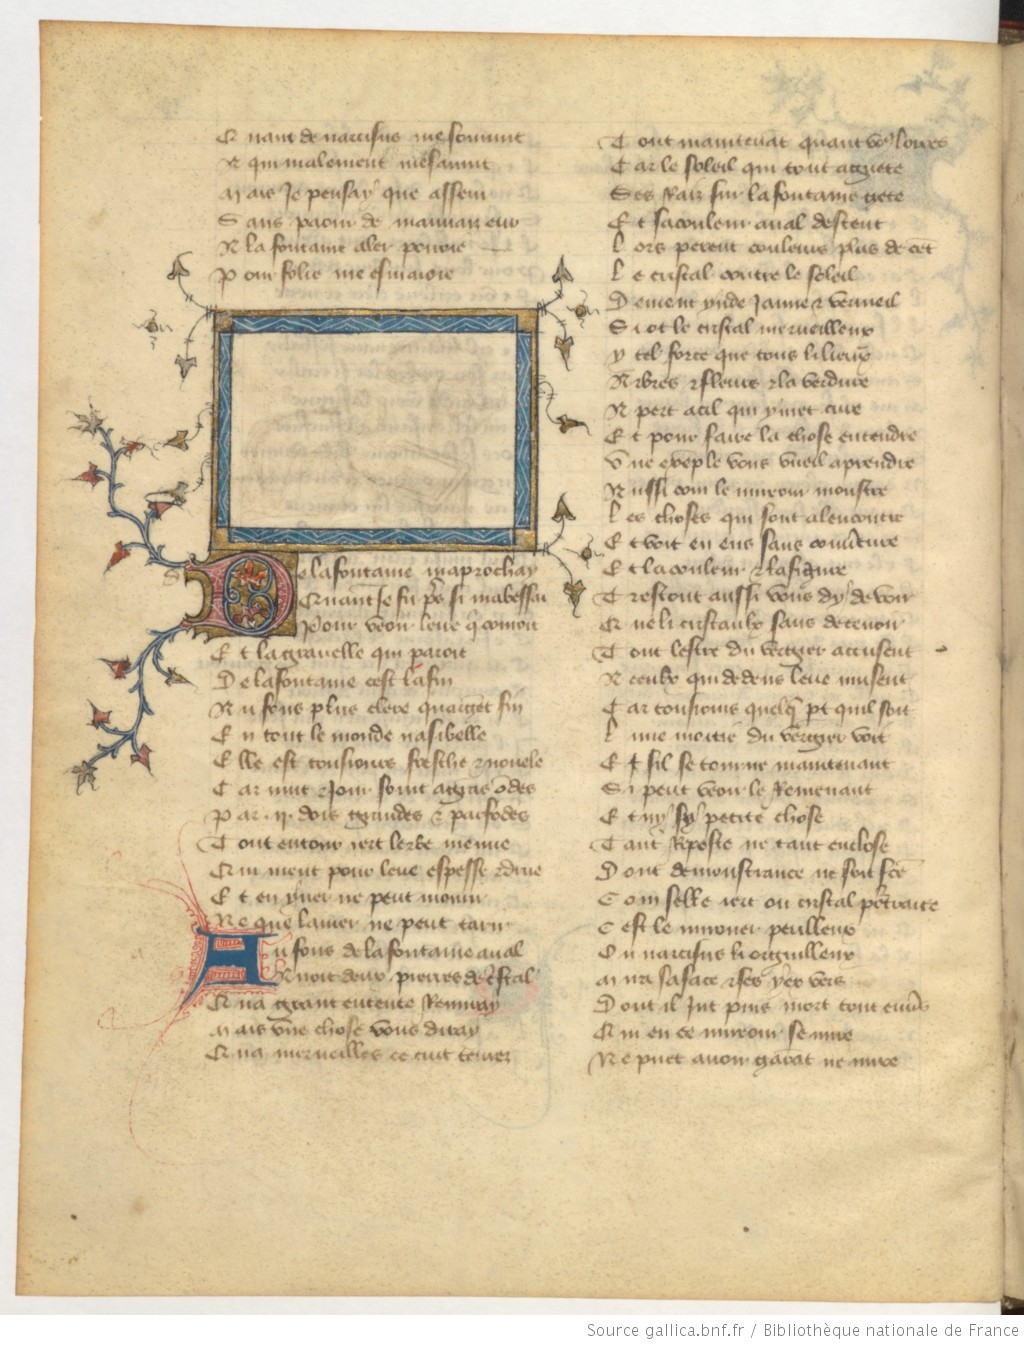 Quant de narcisus me souuint
A qui malement mesauint
Mais Je pensay que asseur
Sans paour de mauuaiz eur
A la fontaine aler pouoie
Pour folie me esmaioie
De lafontaine maprochay
Quant Je fu pres si mabessai
Pour veoir leue qi couroit
Et lagrauelle qui paroit
De lafontaine cest lafin
Au fons plus clere quarget fin
En tout le monde nasibelle
Elle est tousiours fresche et nouuele
Car nuit et Jour sourt agras odes
Par .ij. dois grandes et parfodes
Tout entour iert lerbe menue
Qui vient pour leue espesse et drue
Et en yuer ne peut mourir
Ne que lauer ne peut tarir
Au fons de lafontaine aual
Auoit deux pierres de cristal
Qua grant entente Remiray
Mais vne chose vous diray
Qua merueilles ce cuit tenrez
Tout maintenat quant vous lorres
Car le soleil qui tout agaiete
Ses Raiz sur lafontaine giete
Et sacouleur aual descent
Lors perent couleurs plus de cet
Le cristal contre le soleil
Deuient ynde Jaune et vermeil
Si ot le cristal merueilleux
y tel force que tous li lieux
Arbres et fleurs et la verdure
A pert acil qui ymet cure
Et pour faire la chose entendre
Vne exeple vous vueil aprendre
Aussi com le mirouir monstre
Les choses qui sont alencontre
Et voit en ens sans couuerture
Et lacouleur et lafigure
Trestout aussi vous dy de voir
Que li cristaulx sans deceuoir
Tout lestre du vergier accusent
A ceulx qui dedens leue musent
Car tousiours quelq part quil soit
Lune moitie du vergier voit
Et sil se tourne maintenant
Si peut veoir le Remenant
Et ny sy petite chose
Tant Reposte ne tant enclose
Dont demonstrance ne soit fce
Com selle iert ou cristal portraite
Cest le mirouer perilleux
Ou narcisus li orguilleux
Mira saface et ses yex vers
Dont il Jut puis mort tout enuers
Qui en ce mirouir se mire
Ne puet auoir garat ne mire
Source gallica.bnf.fr / Bibliothèque nationale de France